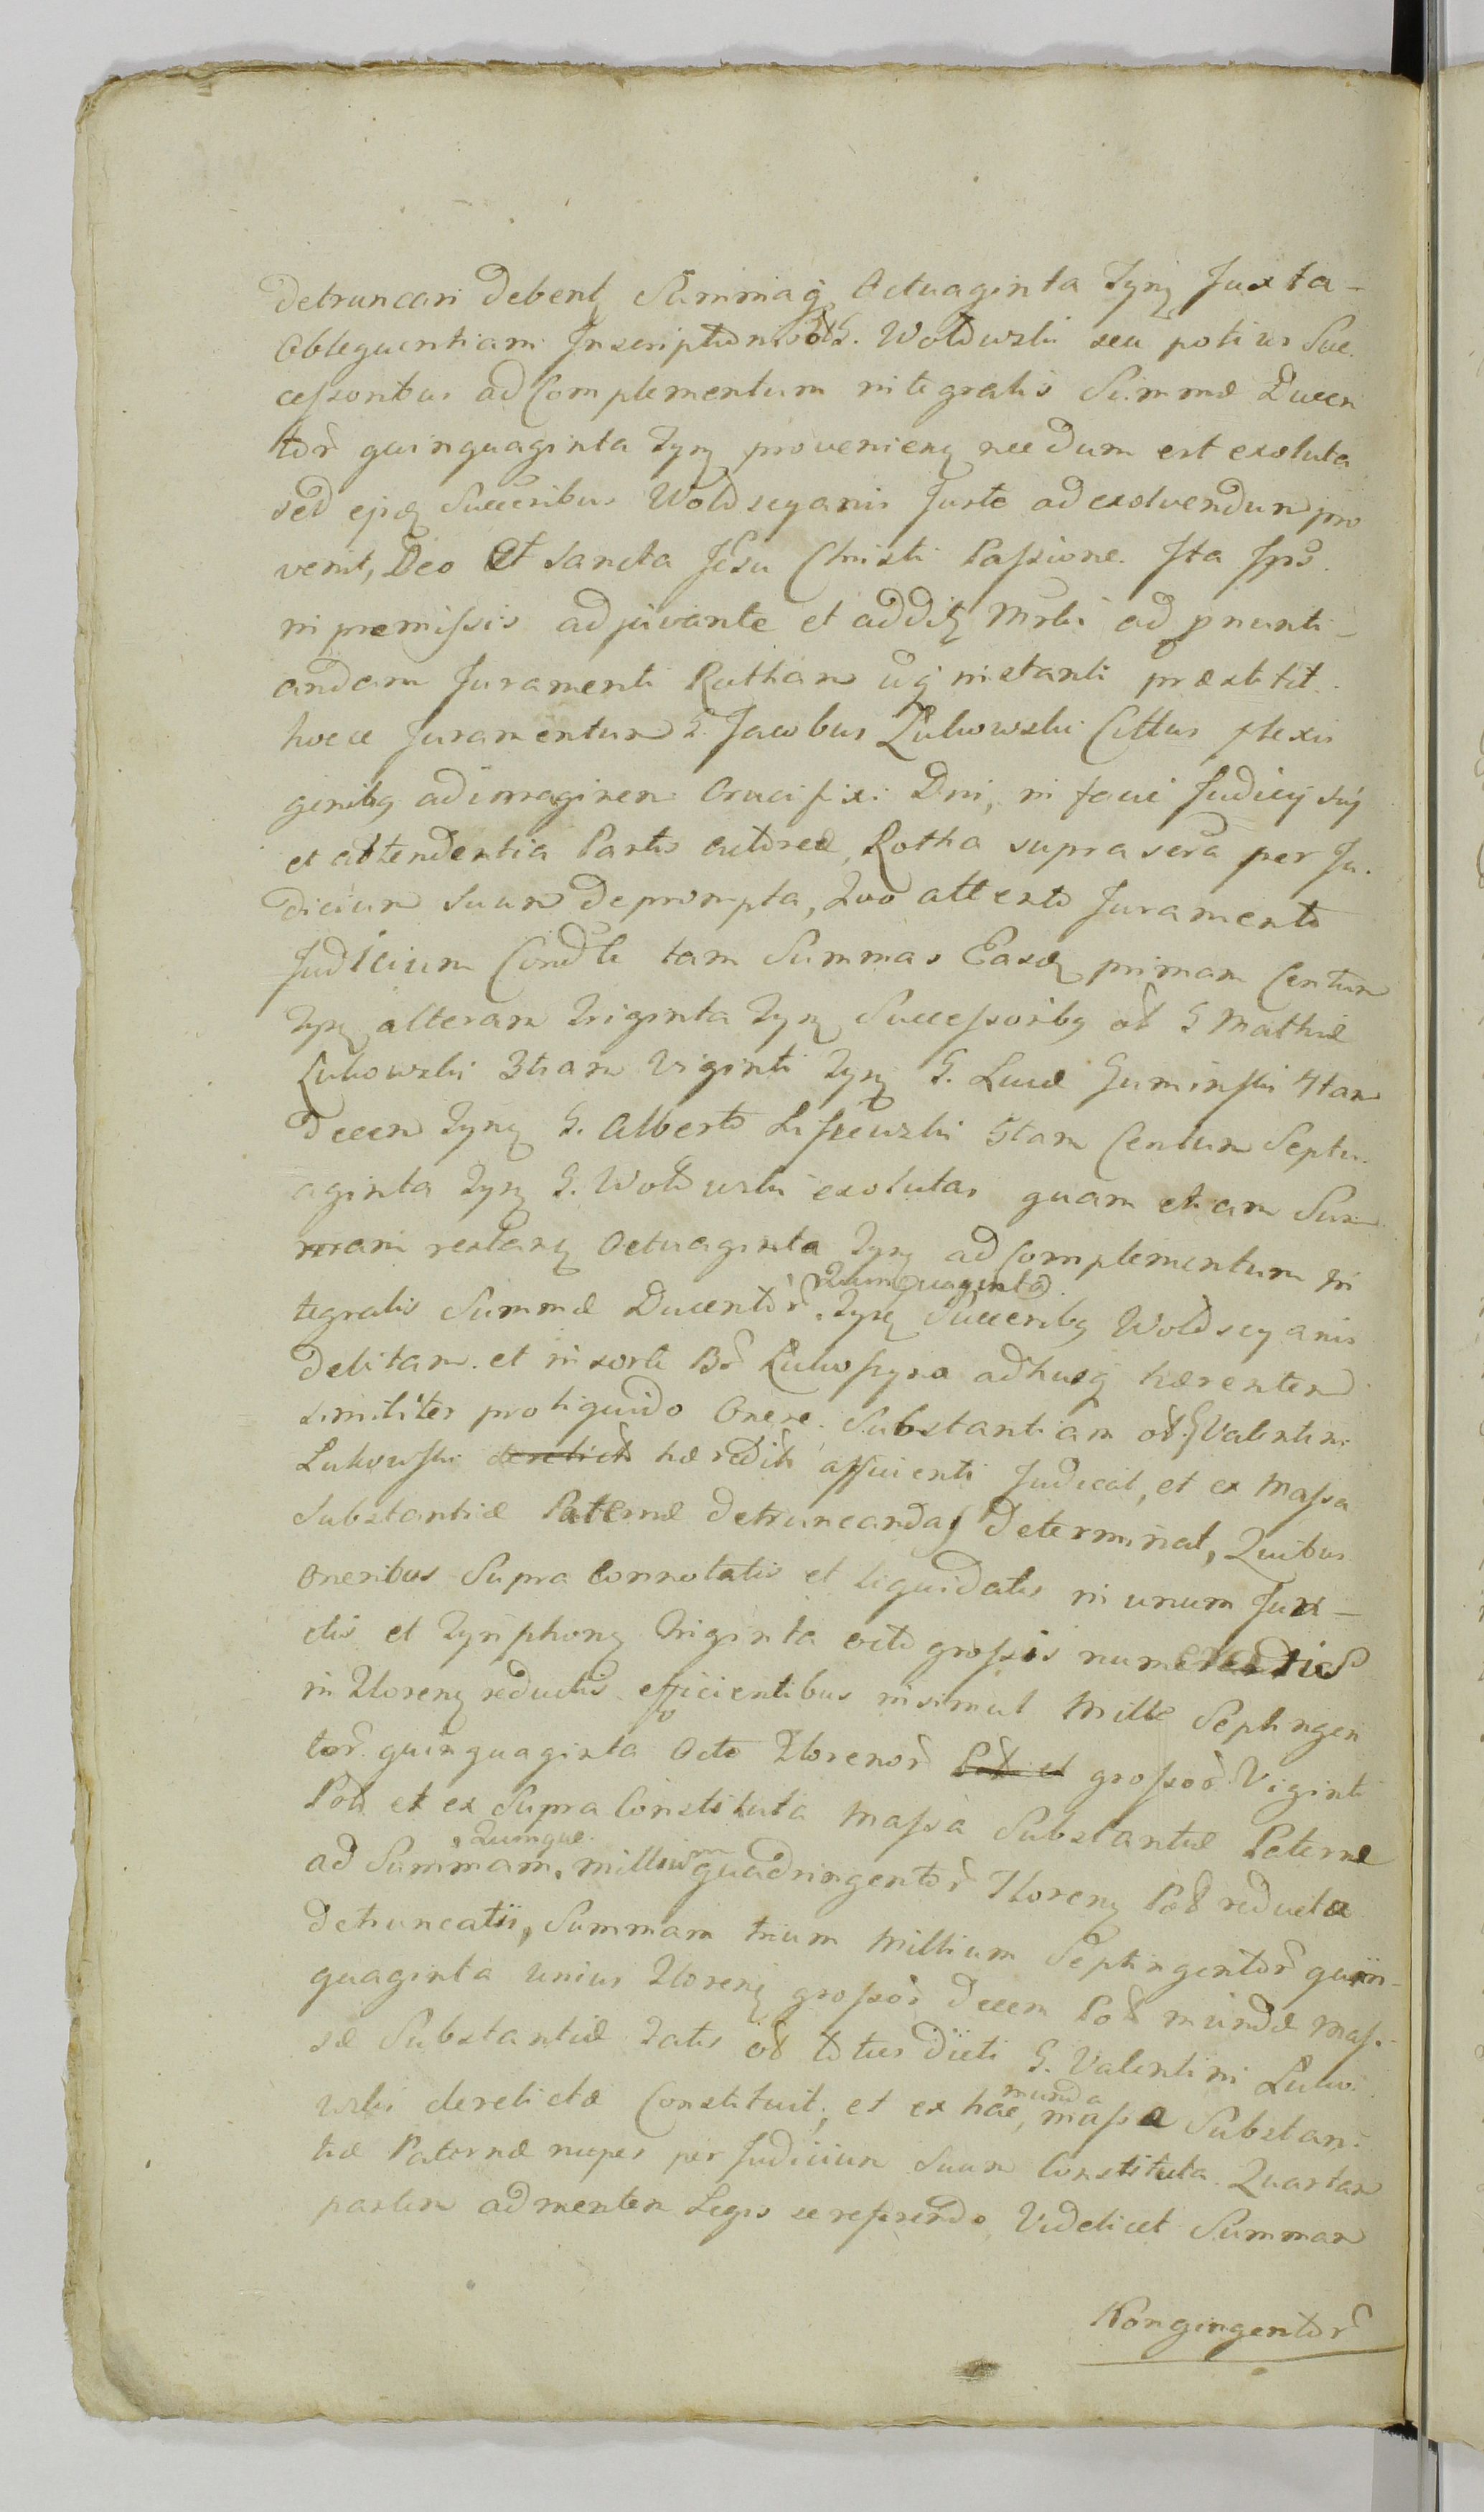 Detruncari Debent Summaq Octuaginta Tynf Juxta-
Obleguentiam Inscriptionis oß G. Wolduzki seu potius Suc.
cessoribus ad Complementum integralis Summæ Ducen
tor quinquaginta Tynf provenienf necdum est exoluta
sed ejsd Succeribus Woldscyanis Juste ad exolvendum pro
venit, Deo Et Sancta Jesu Christi Passione. Ita Ipso
in premissis adjuvante et addit Mrli ad pnunti-
andam Juramenti Rotham uq instanti præstitit.
hocce Juramentum G. Jacobus Lukowski Cittus flexis
genibq ad imaginem Crucifixi Dni, in facie Judicij sui
et attendentia Partis actoreæ, Rotha supra scra per Ju.
dicium suum deprompta, Quo attento Juramento
Judicium Condle tam Summas Easd primam Centum
Tynf alteram Triginta Tynf Successoribq oß G Mathiæ
Lukowski 3tiam Viginti Tynf G. Lucæ Guminski 4tam
decem Tynf G. Alberto Lissewski 5tam Centum Septu.
aginta Tynf G. Wolduzki exolutas quam etiam Sum
mam restanf Octuaginta Tynf ad Complementum In
tegralis Summæ Ducentor, Quinquaginta Tynf Succeribq Woldscyanis
debitam. et in sorte Br Lukoszyna adhucq hærentem
similiter pro liquido Onere. Substantiam oß G Valentini
Lukowski derelict hæredit afficienti Judicat, et ex Massa
Substantiæ Paternæ detruncandas determinat, Quibus
Oneribus Supra Connotatis et liquidatis in unum Jun-
ctis et Tynphonf Triginta octo grossis numerandis
in Florenf reductis efficientibus insimul Mille Septingen
tor. quinquaginta Octo Florenor Pol et grossor Viginti
Pol et ex Supra Constituta Massa Substantiæ Paternæ
ad Summam, Quinque millium quadringentor Florenf Pol reducta
detruncatis, Summam trium Millium Septingentor quin-
quaginta unius Florenf grossor decem Pol mundæ Mas.
sæ Substantiæ Patis oß toties dicti G. Valentini Luko.
wski derelictæ Constituit, et ex hac, munda massa Substan.
tiæ Paternæ nuper per Judicium Suum Constituta. Quartam
partem ad mentem Legis se referendo Videlicet Summam
Nongingentor